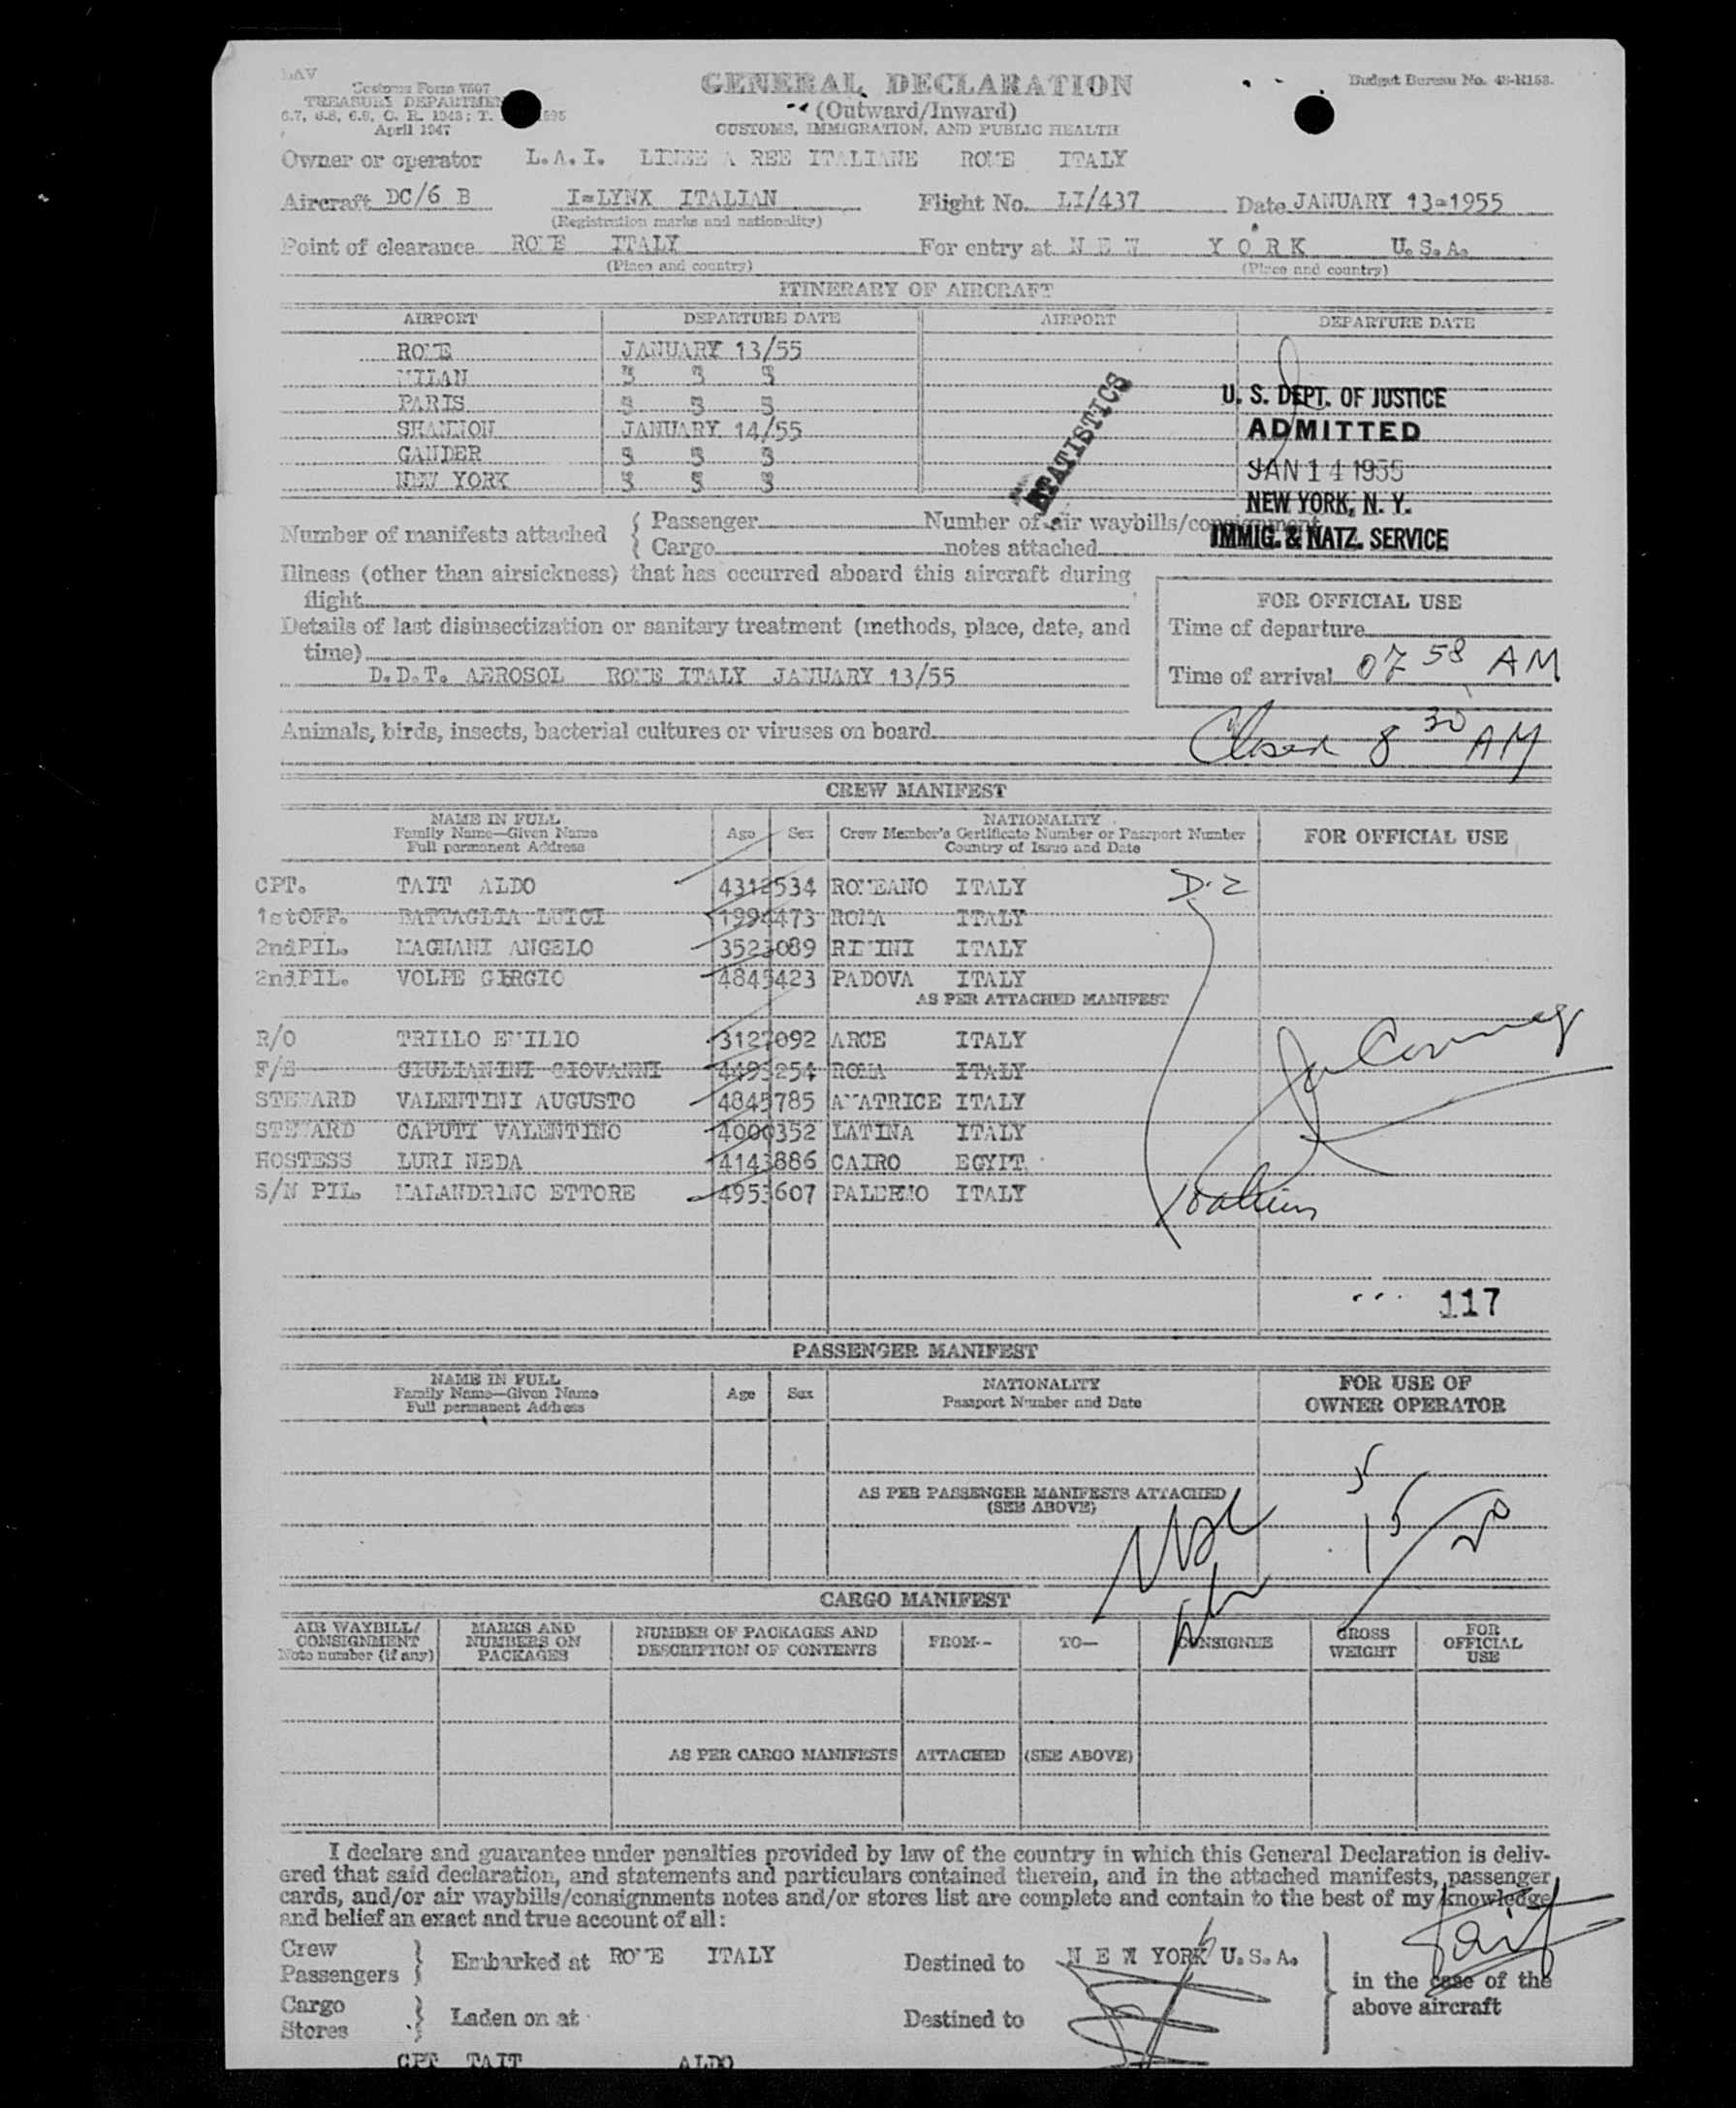 LAV
Customs Form 7507
TREASURY DEPARTMEN
6.7, 6.8, 6.9, C. R. 1943; T.
April 1947
GENERAL DECLARATION
(Outward/Inward)
CUSTOMS, IMMIGRATION, AND PUBLIC HEALTH
Budget Bureau No. 48-R153.
Owner or operator L.A.I. LINEE A REE ITALIANE ROME ITALY
Aircraft DC/6 B I=LYNX ITALIAN Flight No. LI/437 Date JANUARY 13=1955
(Registration marks and nationality)
Point of clearance ROME ITALY For entry at N E W Y O R K U.S.A.
(Place and country) (Place and country)
ITINERARY OF AIRCRAFT
AIRPORT DEPARTURE DATE AIRPORT DEPARTURE DATE
ROME JANUARY 13/55
MILAN 3 3 3
PARIS 3 3 3
SHANNON JANUARY 14/55
GANDER 3 3 3
NEW YORK 3 3 3
STATISTICS
U. S. DEPT. OF JUSTICE
ADMITTED
JAN 14 1955
NEW YORK, N. Y.
IMMIG. & NATZ. SERVICE
Number of manifests attached { Passenger Number of air waybills/consignment
{ Cargo notes attached
Illness (other than airsickness) that has occurred aboard this aircraft during
flight
Details of last disinsectization or sanitary treatment (methods, place, date, and
time)
D.D.T. AEROSOL ROME ITALY JANUARY 13/55
FOR OFFICIAL USE
Time of departure
Time of arrival 07 58 AM
Animals, birds, insects, bacterial cultures or viruses on board
Closed 8 30 AM
CREW MANIFEST
NAME IN FULL
Family Name—Given Name
Full permanent Address
Age Sex
NATIONALITY
Crew Member's Certificate Number or Passport Number
Country of Issue and Date
FOR OFFICIAL USE
CPT. TAIT ALDO 4312534 ROMEANO ITALY D-2
1stOFF. BATTAGLIA LUIGI 1994473 ROMA ITALY
2ndPIL. MAGNANI ANGELO 3523089 RIMINI ITALY
2ndPIL. VOLPE GIRGIO 4845423 PADOVA ITALY
AS PER ATTACHED MANIFEST
R/O TRILLO EMILIO 3127092 ARCE ITALY
F/E GIULIANINI GIOVANNI 4493254 ROMA ITALY
STEWARD VALENTINI AUGUSTO 4845785 AMATRICE ITALY
STEWARD CAPUTI VALENTINO 4000352 LATINA ITALY
HOSTESS LURI NEDA 4143886 CAIRO EGYIT
S/N PIL. MALANDRINO ETTORE 4953607 PALERMO ITALY
117
PASSENGER MANIFEST
NAME IN FULL
Family Name—Given Name
Full permanent Address
Age Sex
NATIONALITY
Passport Number and Date
FOR USE OF
OWNER OPERATOR
5
AS PER PASSENGER MANIFESTS ATTACHED
(SEE ABOVE)
15/20
CARGO MANIFEST
AIR WAYBILL/
CONSIGNMENT
Note number (if any)
MARKS AND
NUMBERS ON
PACKAGES
NUMBER OF PACKAGES AND
DESCRIPTION OF CONTENTS
FROM--
TO—
CONSIGNEE
GROSS
WEIGHT
FOR
OFFICIAL
USE
AS PER CARGO MANIFESTS ATTACHED (SEE ABOVE)
I declare and guarantee under penalties provided by law of the country in which this General Declaration is deliv-
ered that said declaration, and statements and particulars contained therein, and in the attached manifests, passenger
cards, and/or air waybills/consignments notes and/or stores list are complete and contain to the best of my knowledge
and belief an exact and true account of all:
Tait
Crew
Passengers } Embarked at ROME ITALY Destined to N E W YORK U.S.A.
Cargo
Stores } Laden on at Destined to
in the case of the
above aircraft
CPT TAIT ALDO